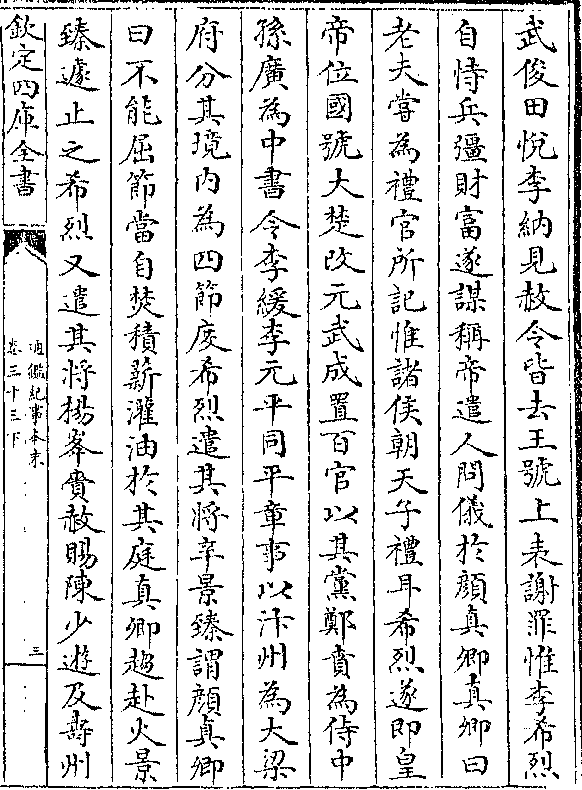 武俊田悅李納見赦令皆去王號上表謝罪惟李希烈
自恃兵彊財富遂謀稱帝遣人問儀於顔真卿真卿曰
老夫嘗為禮官所記惟諸侯朝天子禮耳希烈遂即皇
帝位國號大楚改元武成置百官以其黨鄭賁為侍中
孫廣為中書令李緩李元平同平章事以汴州為大梁
府分其境内為四節度希烈遣其將辛景臻謂顔真卿
曰不能屈節當自焚積薪灌油於其庭真卿趨赴火景
臻遽止之希烈又遣其將楊峯賫赦賜陳少遊及壽州
欽定四庫全書
通鑑紀事本末
卷三十三下
三